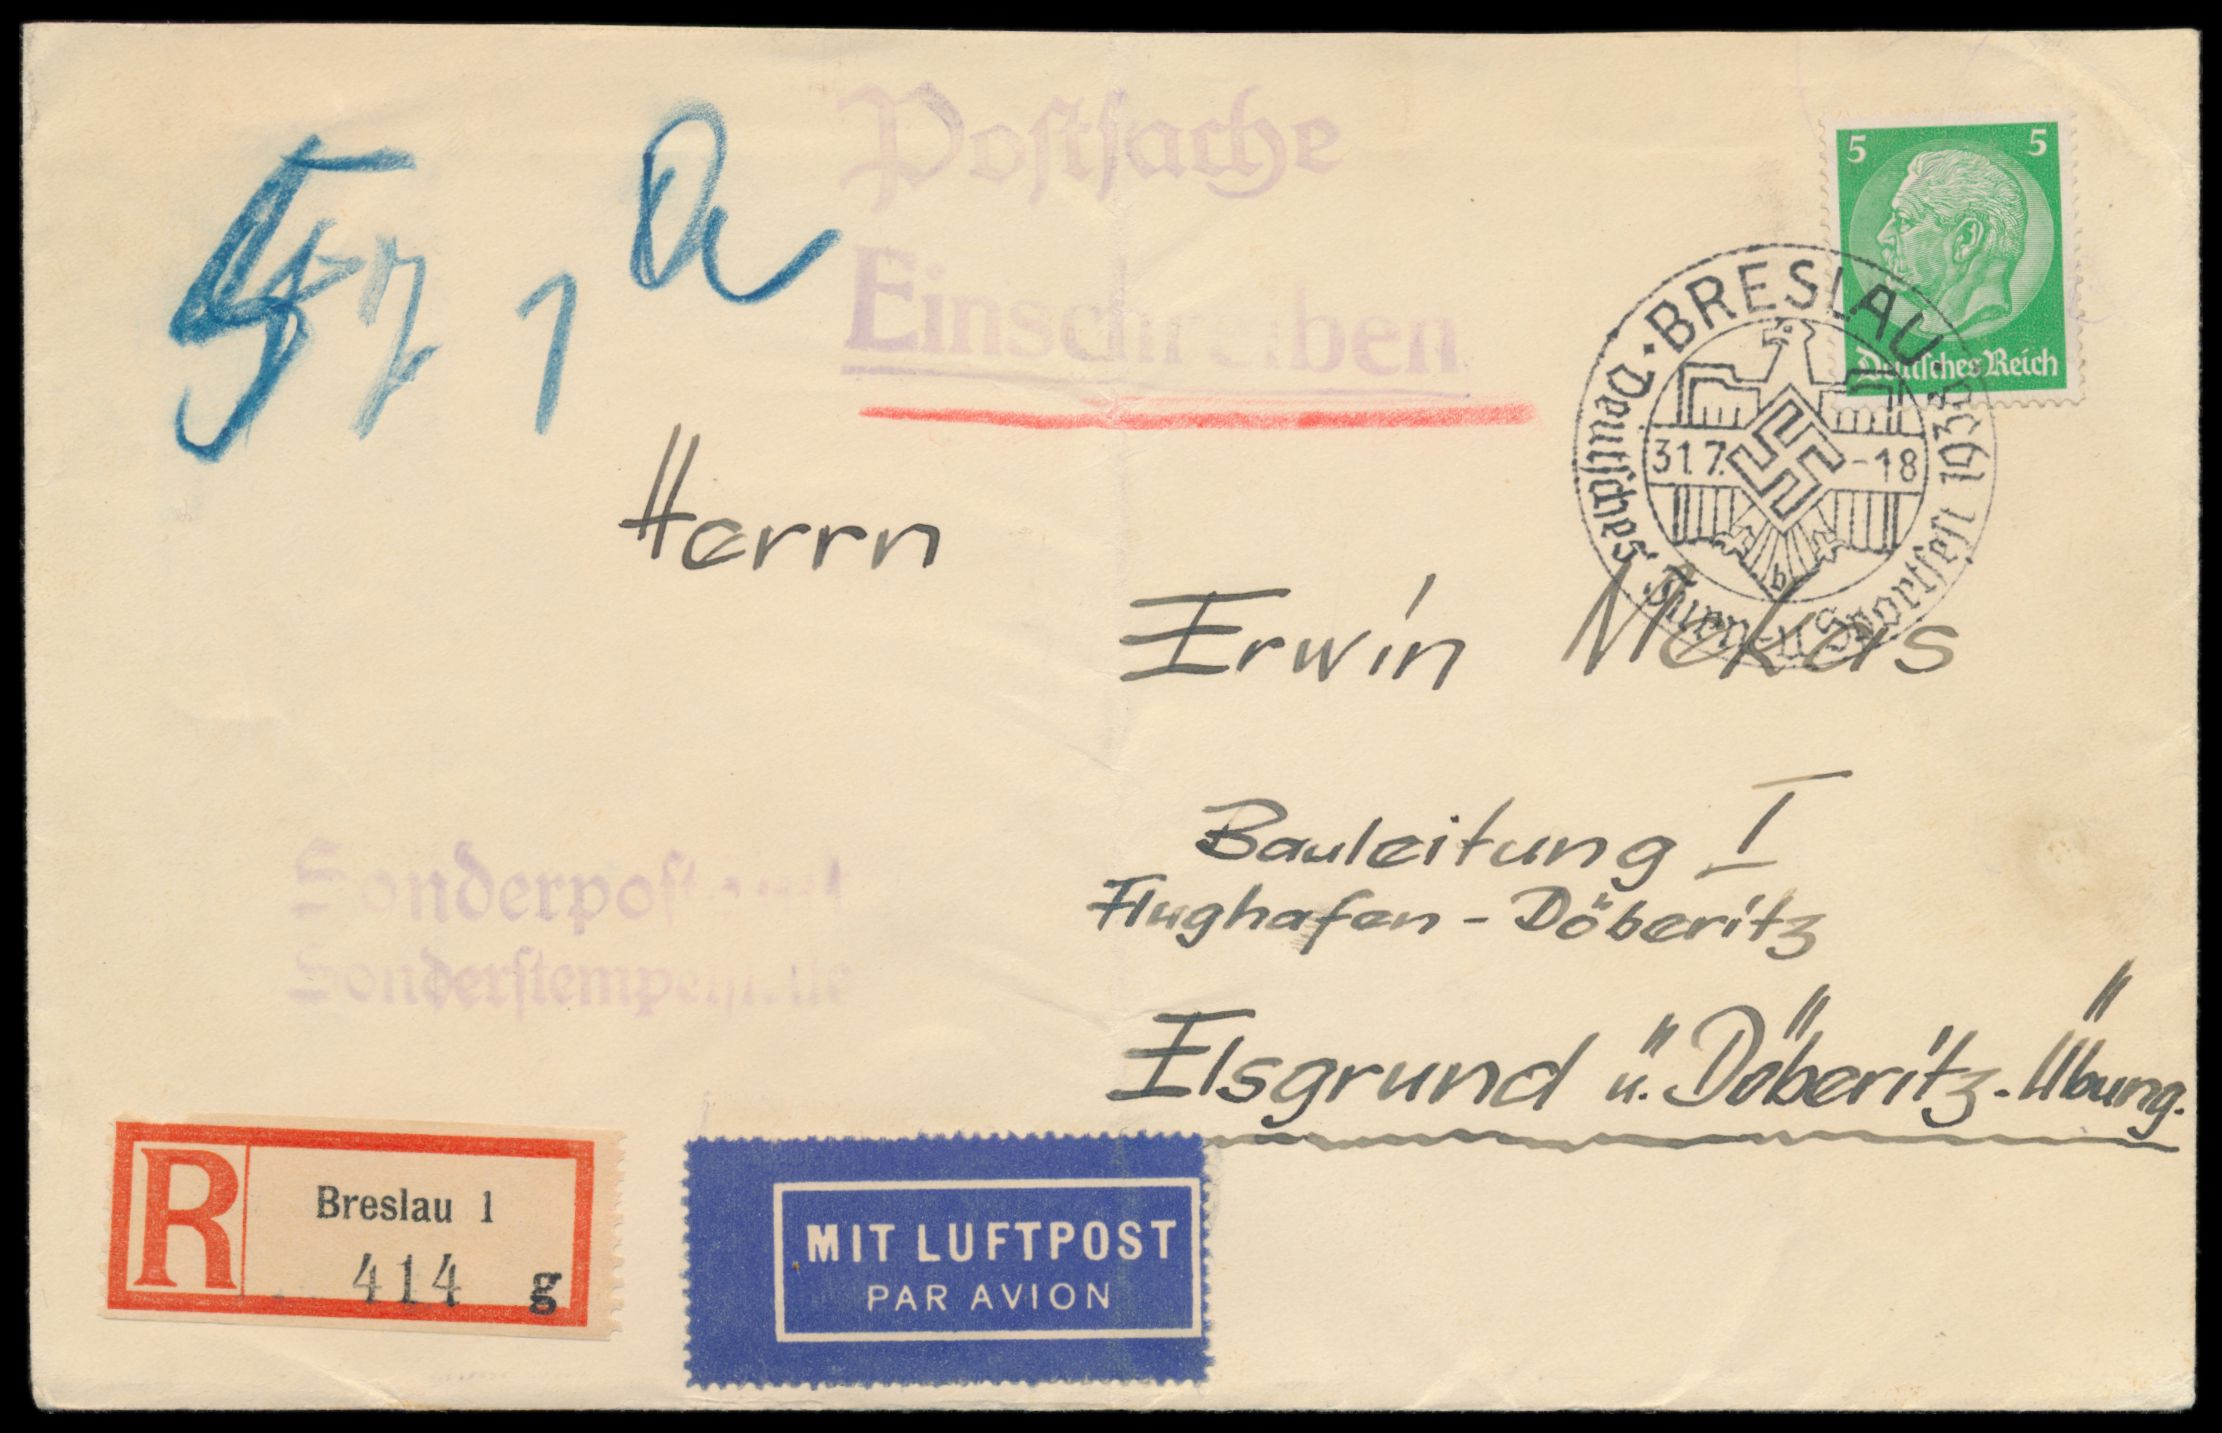 Postsache
Einschreiben
5 5
Deutsches Reich
BRESLAU
31.7. -18
Deutsches Turn- u. Sportfest 1938
Herrn
Erwin Mekas
Bauleitung I
Flughafen - Döberitz
Elsgrund ü. Döberitz-Übung.
Sonderpostamt
Sonderstempelstelle
R
Breslau 1
414 g
MIT LUFTPOST
PAR AVION